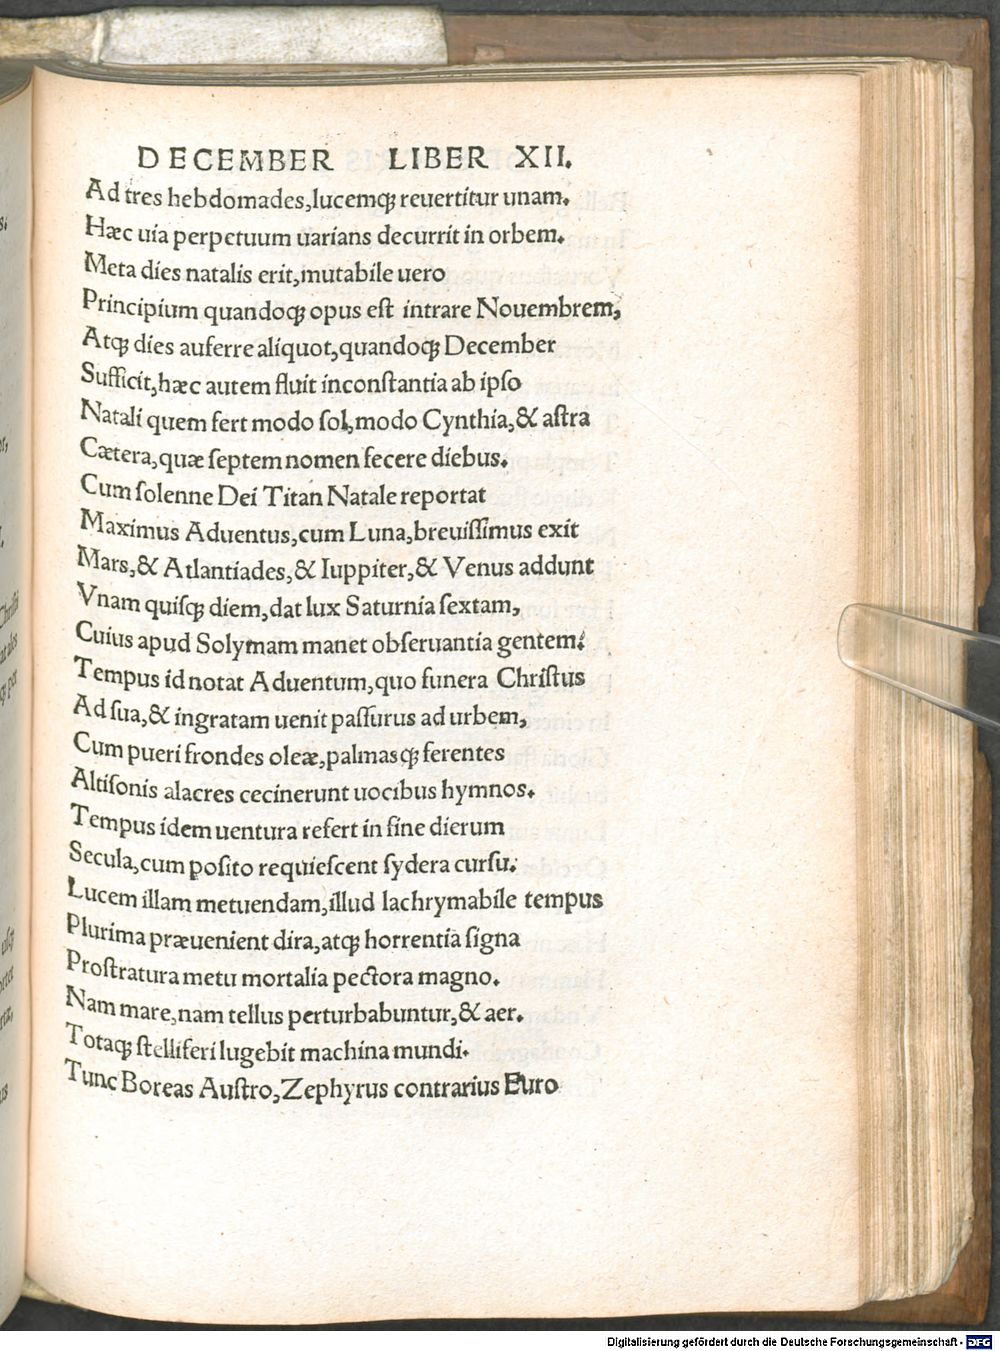 DECEMBER LIBER XII.
Ad tres hebdomades,lucemqꝫ reuertitur unam.
Hæc uia perpetuum uarians decurrit in orbem.
Meta dies natalis erit,mutabile uero
Principium quandoqꝫ opus est intrare Nouembrem,
Atqꝫ dies auferre aliquot,quandoqꝫ December
Sufficit,hæc autem fluit inconstantia ab ipso
Natali quem fert modo sol,modo Cynthia,& astra
Cætera,quæ septem nomen fecere diebus.
Cum solenne Dei Titan Natale reportat
Maximus Aduentus,cum Luna,breuissimus exit
Mars,& Atlantiades,& Iuppiter,& Venus addunt
Vnam quisqꝫ diem,dat lux Saturnia sextam,
Cuius apud Solymam manet obseruantia gentem.
Tempus id notat Aduentum,quo funera Christus
Ad sua,& ingratam uenit passurus ad urbem,
Cum pueri frondes oleæ,palmasqꝫ ferentes
Altisonis alacres cecinerunt uocibus hymnos.
Tempus idem uentura refert in fine dierum
Secula,cum posito requiescent sydera cursu.
Lucem illam metuendam,illud lachrymabile tempus
Plurima præuenient dira,atqꝫ horrentia signa
Prostratura metu mortalia pectora magno.
Nam mare,nam tellus perturbabuntur,& aer.
Totaqꝫ stelliferi lugebit machina mundi.
Tunc Boreas Austro,Zephyrus contrarius Euro
Digitalisierung gefördert durch die Deutsche Forschungsgemeinschaft - DFG